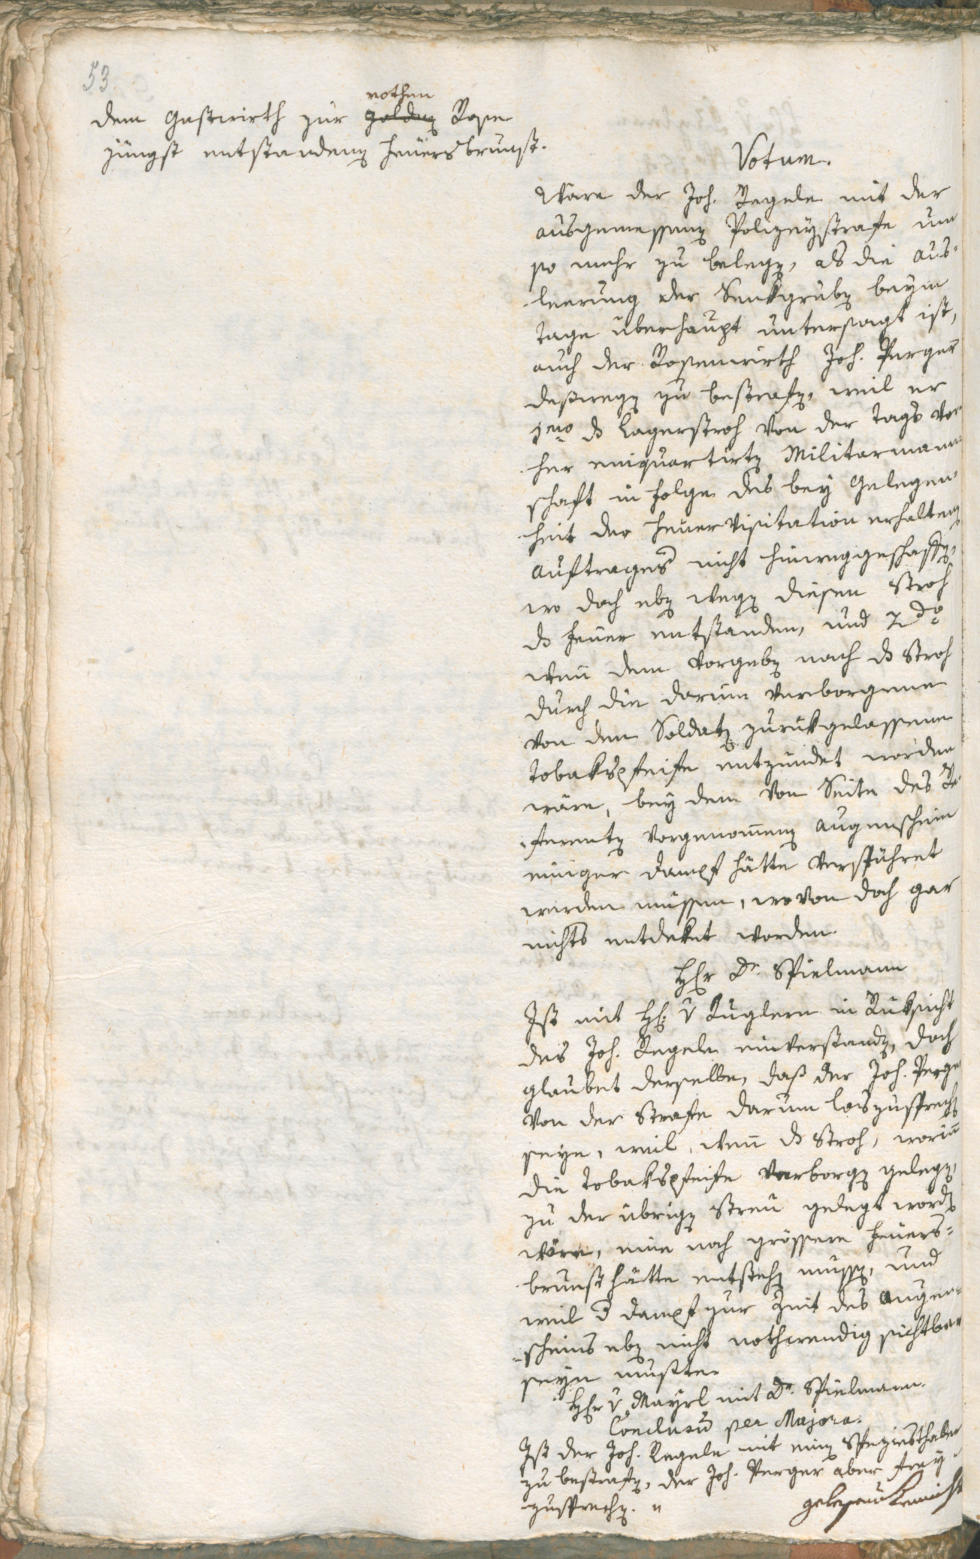 53
rothen
dem Gastwirth zur golden Rose
jüngst entstandenen Feüersbrunst.
Votum.
Wäre der Joh. Regele mit der
ausgemessenen Polizeystrafe um
so mehr zu belegen, als die Aus-
leerung der Senkgruben beym
Tage überhaupt untersagt ist,
auch der Rosenwirth Joh. Perger
deßwegen zu bestrafen, weil er
1mo das Lagerstroh von der Tags vor
her einquartirten Militarmann
schaft in Folge des bey Gelegen-
heit der Feuer Visitation erhaltenen
Auftrages nicht hinweggeschaffen,
wo doch eben wegen diesen Stroh
das Feuer entstanden, und 2do
wenn dem Vorgeben nach das Stroh
durch die darinn verborgene
von dem Soldaten zurückgelassene
Tobakspfeife entzündet worden
wäre, bey dem von Seite des Re-
ferenten vorgenommenen Augenschein
einiger Dampf hätte verspühret
werden müssen, wovon doch gar
nichts entdeket worden.
Herr Dr. Spielmann
Ist mit H: v Kuglern in Rüksicht
des Joh. Regele einverstanden, doch
glaubet derselbe, daß der Joh. Perger
von der Strafe darum loszusprechen
seye, weil, wenn das Stroh, worinn
die Tobakspfeife verborgen gelegen,
zu der übrigen Streü gelegt worden
wäre, eine noch grössere Feüers-
brunst hätte entstehen müssen, und
weil der Dampf zur Zeit des Augen-
scheins eben nicht nothwendig sichtbar
seyn mußte.
Herr v Mayrl mit Dr. Spielmann.
Conclusum per Majora.
Ist der Joh. Regele mit einen Speziesthaler
zu bestrafen, der Joh. Perger aber frey
zusprechen.